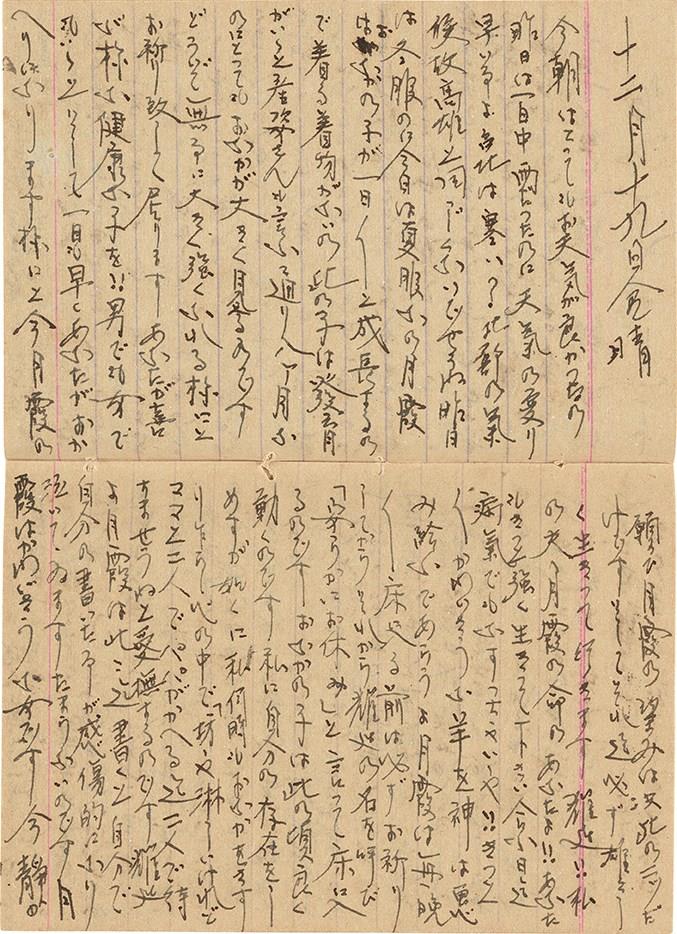 十二月十九日 晴
今朝はとってもお天気が良かったの
昨日は一日中曇ったのに 天気の変り
早い事よ 台北は寒い? 北部の気
候故高雄と同じくないでせうね 昨日
は冬服のに今日は夏服なの 月霞
はおなかの子が一日〳〵と成長するの
で着る着物がないの 此の子は発育
がいゝと産婆さんも言ふ通り八ケ月な
のにとってもおなかが大きく見えるのです
どうぞ無事に大きく強くなれる様にと
お祈り致して居ります あなたが喜
ぶ様な健康な子を!! 男でも女で
もいゝ そして一日も早くあなたがおか
へりになります様にと 今月霞の
願ひ月霞の望みは只此の一つだ
けですそしてそれ迄必ず雄々し
く生きって行きます 雄造!! 私
の夫 月霞の命のあなたよ!! あなた
もきっと強く生きって下さい 今日迄
病気でもなすっちゃいや!! きっと
かわいさうな羊を神は恵
み給ふであらうよ 月霞は毎晩
〳〵床に入る前は必ずお祈り
してからそれから雄造の名を呼び
「安らかにお休み」と言って床に入
るのです おなかの子は此の頃良く
動くのです 私に自分の存在をし
めすが如くに 私何時もおなかをさす
りながら心の中で「坊や淋しいけれど
ママと二人でパパがかへる迄二人で待
ちませうね」と愛撫するのです 雄造
よ月霞は此こ迄書くと自分で
自分の書った事が感傷的になり
泣いてゐます たまらないのです 月
霞はかわいさうな女です 今静か